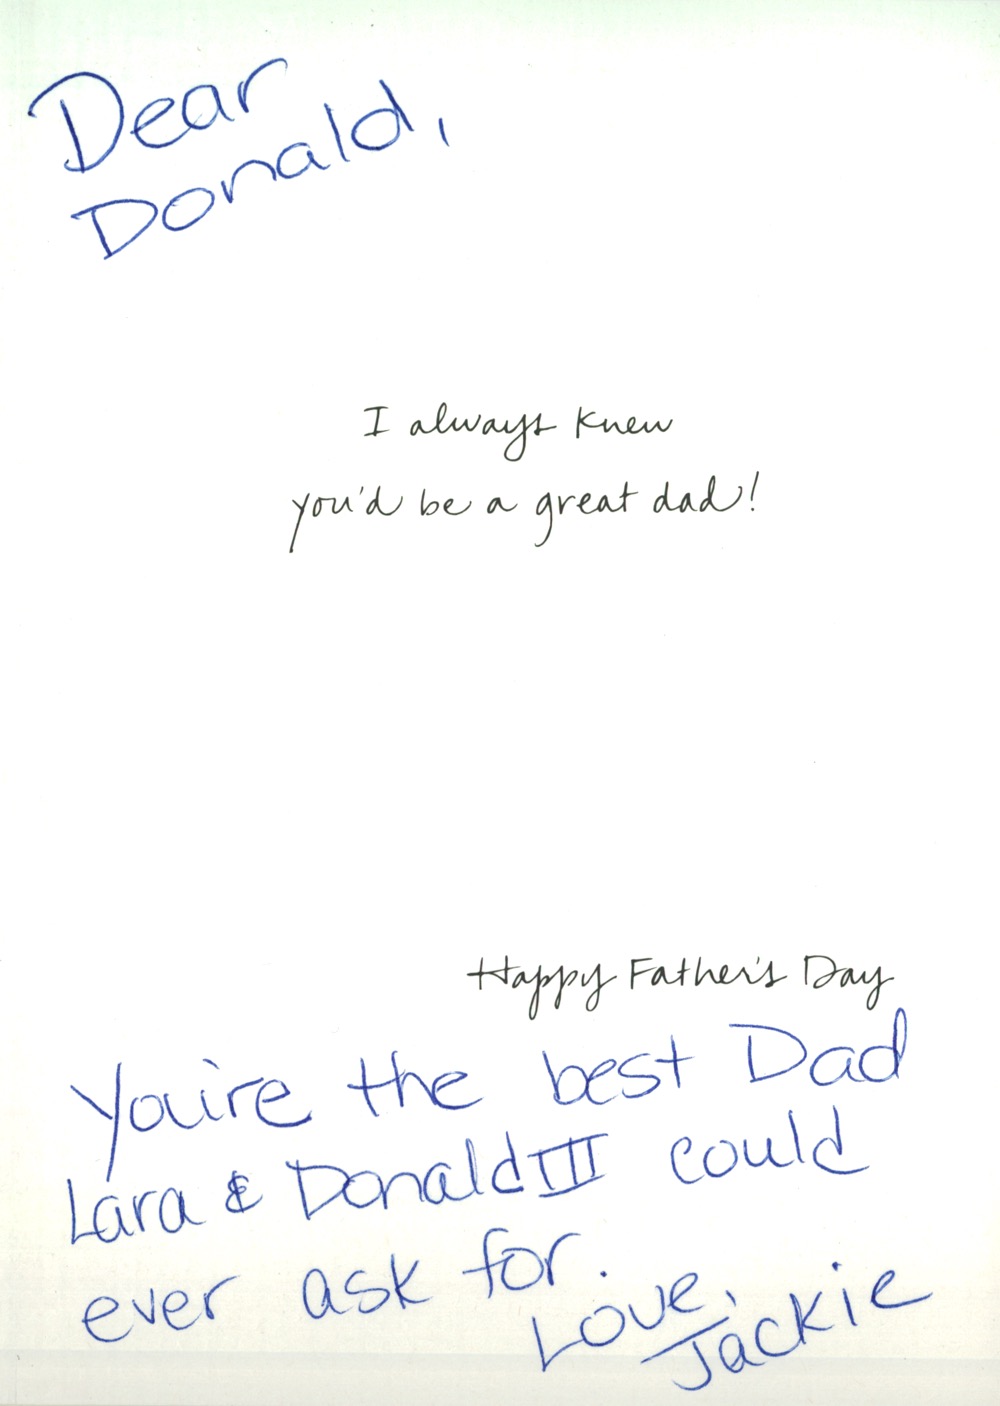 Dear
Donald,
I always knew
you'd be a great dad!
Happy Father's Day
You're the best Dad
Lara & Donald III could
ever ask for.
Love,
Jackie